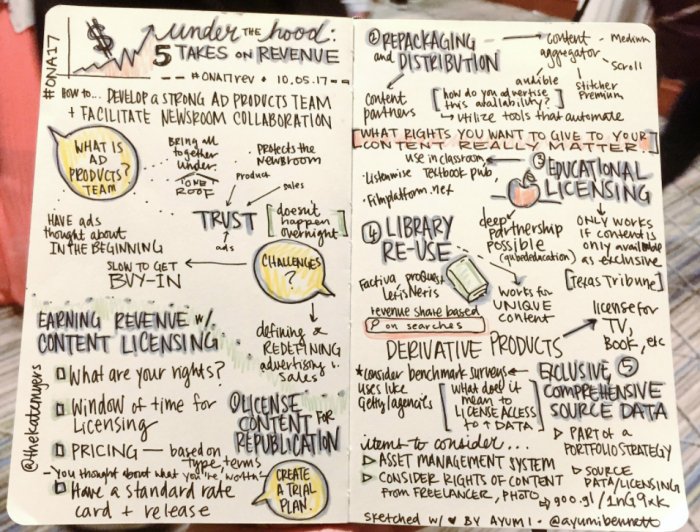 #ONA17
$
under the hood:
5 TAKES ON REVENUE
#ONA17rev • 10.05.17
HOW TO... DEVELOP A STRONG AD PRODUCTS TEAM
+ FACILITATE NEWSROOM COLLABORATION
WHAT IS
AD
PRODUCTS?
TEAM
BRING ALL
together
under
"ONE
ROOF"
PROTECTS THE
NEWSROOM
product
sales
TRUST
ads
[doesn't
happen
overnight]
HAVE ads
thought about
IN THE BEGINNING
SLOW TO GET
BUY-IN
CHALLENGES
?
defining &
REDEFINING
advertising v.
sales
EARNING REVENUE w/
CONTENT LICENSING
What are your rights?
Window of time for
Licensing
PRICING — based on
type, terms
- you thought about what you're worth -
Have a standard rate
card + release
@thekatemyers
① LICENSE
CONTENT FOR
REPUBLICATION
CREATE
A TRIAL
PLAN.
② REPACKAGING
and DISTRIBUTION
content
aggregator
Medium
Scroll
Stitcher
Premium
audible
content
partners
[how do you advertise
this availability?]
utilize tools that automate
[WHAT RIGHTS YOU WANT TO GIVE TO YOUR
CONTENT REALLY MATTER]
③ EDUCATIONAL
LICENSING
use in classroom
• Listenwise Textbook pub.
• Filmplatform.net
deep
partnership
possible
ONLY WORKS
IF CONTENT IS
ONLY available
as exclusive
[Texas Tribune]
④ LIBRARY
RE-USE
Factiva ProQuest
LexisNexis
revenue share based
on searches
works for
UNIQUE
content
DERIVATIVE PRODUCTS
license for
TV,
BOOK, etc
EXCLUSIVE ⑤
COMPREHENSIVE
SOURCE DATA
*consider benchmark surveys
uses like
Getty/agencies
[what does it
mean to
LICENSE ACCESS
to ↑ DATA]
▷ PART of a
PORTFOLIO STRATEGY
▷ SOURCE
DATA/LICENSING
goo.gl/1nG9xk
items to consider...
▷ ASSET MANAGEMENT SYSTEM
▷ CONSIDER RIGHTS OF CONTENT
FROM FREELANCER, PHOTO
sketched w/ ♥ BY AYUMI - @ayumibennett